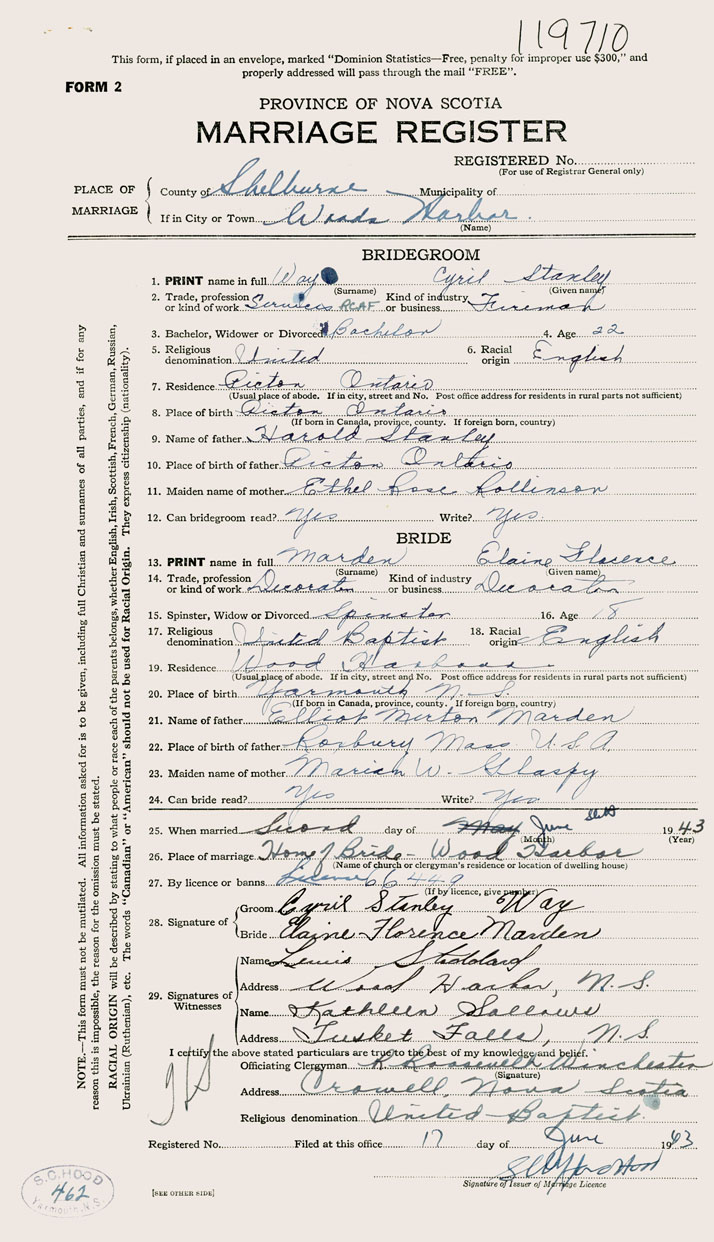 119710
This form, if placed in an envelope, marked “Dominion Statistics—Free, penalty for improper use $300,” and
properly addressed will pass through the mail “FREE”.
FORM 2
PROVINCE OF NOVA SCOTIA
MARRIAGE REGISTER
REGISTERED No.
(For use of Registrar General only)
PLACE OF MARRIAGE
County of Shelburne Municipality of
If in City or Town Woods Harbor.
(Name)
BRIDEGROOM
1. PRINT name in full Way Cyril Stanley
(Surname) (Given name)
2. Trade, profession or kind of work Services RCAF Kind of industry or business Fireman
3. Bachelor, Widower or Divorced Bachelor 4. Age 22
5. Religious denomination United 6. Racial origin English
7. Residence Picton Ontario
(Usual place of abode. If in city, street and No. Post office address for residents in rural parts not sufficient)
8. Place of birth Picton Ontario
(If born in Canada, province, county. If foreign born, country)
9. Name of father Harold Stanley
10. Place of birth of father Picton Ontario
11. Maiden name of mother Ethel Rose Rollinson
12. Can bridegroom read? Yes Write? Yes.
BRIDE
13. PRINT name in full Marden Elaine Florence
(Surname) (Given name)
14. Trade, profession or kind of work Decorator Kind of industry or business Decorator
15. Spinster, Widow or Divorced Spinster 16. Age 18
17. Religious denomination United Baptist 18. Racial origin English
19. Residence Wood Harbour
(Usual place of abode. If in city, street and No. Post office address for residents in rural parts not sufficient)
20. Place of birth Yarmouth N.S.
(If born in Canada, province, county. If foreign born, country)
21. Name of father Elliot Merton Marden
22. Place of birth of father Roxbury Mass U.S.A.
23. Maiden name of mother Marian W. Glaspy
24. Can bride read? Yes Write? Yes
25. When married Second day of May June 1943
(Month) (Year)
26. Place of marriage Home of Bride - Wood Harbor
(Name of church or clergyman's residence or location of dwelling house)
27. By licence or banns License 66449
(If by licence, give number)
28. Signature of
Groom Cyril Stanley Way
Bride Elaine Florence Marden
29. Signatures of Witnesses
Name Lewis Stoddard
Address Wood Harbor, N.S.
Name Kathleen Sollows
Address Tusket Falls, N.S.
I certify the above stated particulars are true to the best of my knowledge and belief.
Officiating Clergyman R. Roosevelt Winchester
(Signature)
Address Crowell, Nova Scotia
Religious denomination United Baptist.
Registered No. Filed at this office 17 day of June 1943
Signature of Issuer of Marriage Licence
[SEE OTHER SIDE]
S.C. HOOD
462
Yarmouth, N.S.
NOTE.—This form must not be mutilated. All information asked for is to be given, including full Christian and surnames of all parties, and if for any
reason this is impossible, the reason for the omission must be stated.
RACIAL ORIGIN will be described by stating to what people or race each of the parents belongs, whether English, Irish, Scottish, French, German, Russian,
Ukrainian (Ruthenian), etc. The words “Canadian” or “American” should not be used for Racial Origin. They express citizenship (nationality).